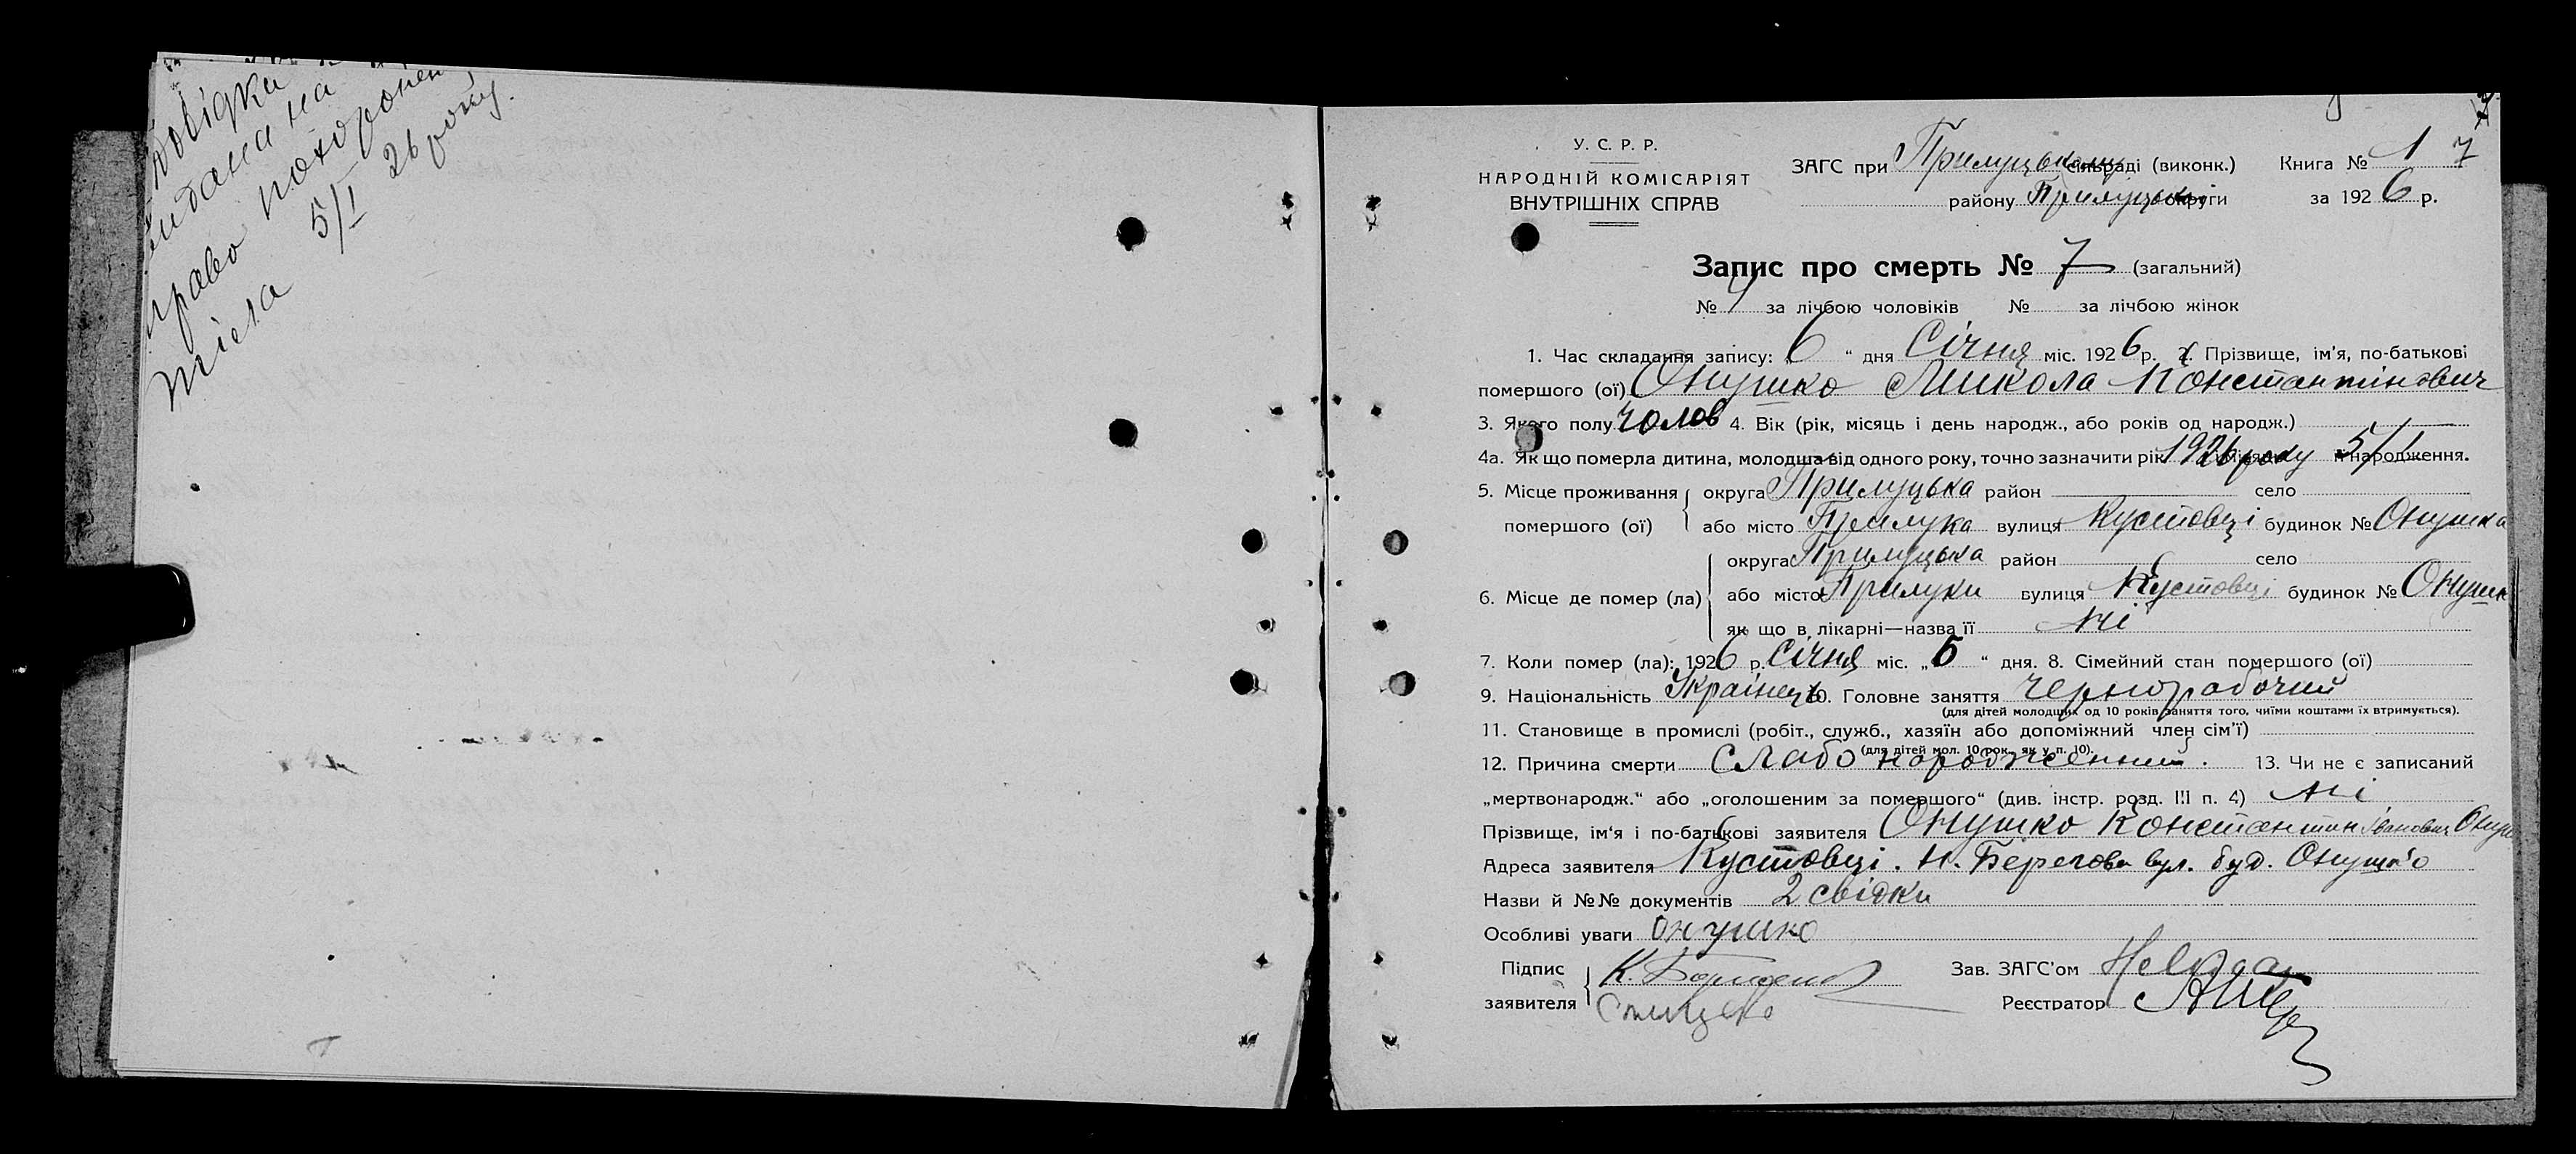 повідка
видана на
право похоронен
тіла 5/I 26 року.
У. С. Р. Р.
НАРОДНІЙ КОМІСАРІЯТ
ВНУТРІШНІХ СПРАВ
ЗАГС при Прилуцькому сільраді (виконк.)
району Прилуцької округи
Книга № 1 7
за 1926 р.
Запис про смерть № 7 (загальний)
№ 4 за лічбою чоловіків № за лічбою жінок
1. Час складання запису: „6“ дня Січня міс. 1926 р. 2. Прізвище, ім'я, по-батькові
помершого (ої) Онушко Микола Константінович
3. Якого полу чолов 4. Вік (рік, місяць і день народж., або років од народж.)
4а. Як що померла дитина, молодша від одного року, точно зазначити рік 1926 року 5/I народження.
5. Місце проживання помершого (ої) округа Прилуцька район село
або місто Прилука вулиця Кустовці будинок № Онушка
6. Місце де помер (ла) округа Прилуцька район село
або місто Прилуки вулиця Кустовці будинок № Онушк
як що в лікарні—назва її ні
7. Коли помер (ла): 1926 р. Січня міс. „5“ дня. 8. Сімейний стан помершого (ої)
9. Національність Українець 10. Головне заняття чернорабочий
(для дітей молодших од 10 років заняття того, чиїми коштами їх втримується).
11. Становище в промислі (робіт., служб., хазяїн або допоміжний член сім'ї)
(для дітей мол. 10 рок. як у п. 10).
12. Причина смерти слабо народженний. 13. Чи не є записаний
„мертвонародж.“ або „оголошеним за помершого“ (див. інстр. розд. III п. 4) ні
Прізвище, ім'я і по-батькові заявителя Онушко Константин Іванович
Адреса заявителя Кустовці. Н. Берегова вул. буд. Онушко
Назви й №№ документів 2 свідки
Особливі уваги Онушко
Підпис заявителя К.
Зав. ЗАГС'ом
Реєстратор